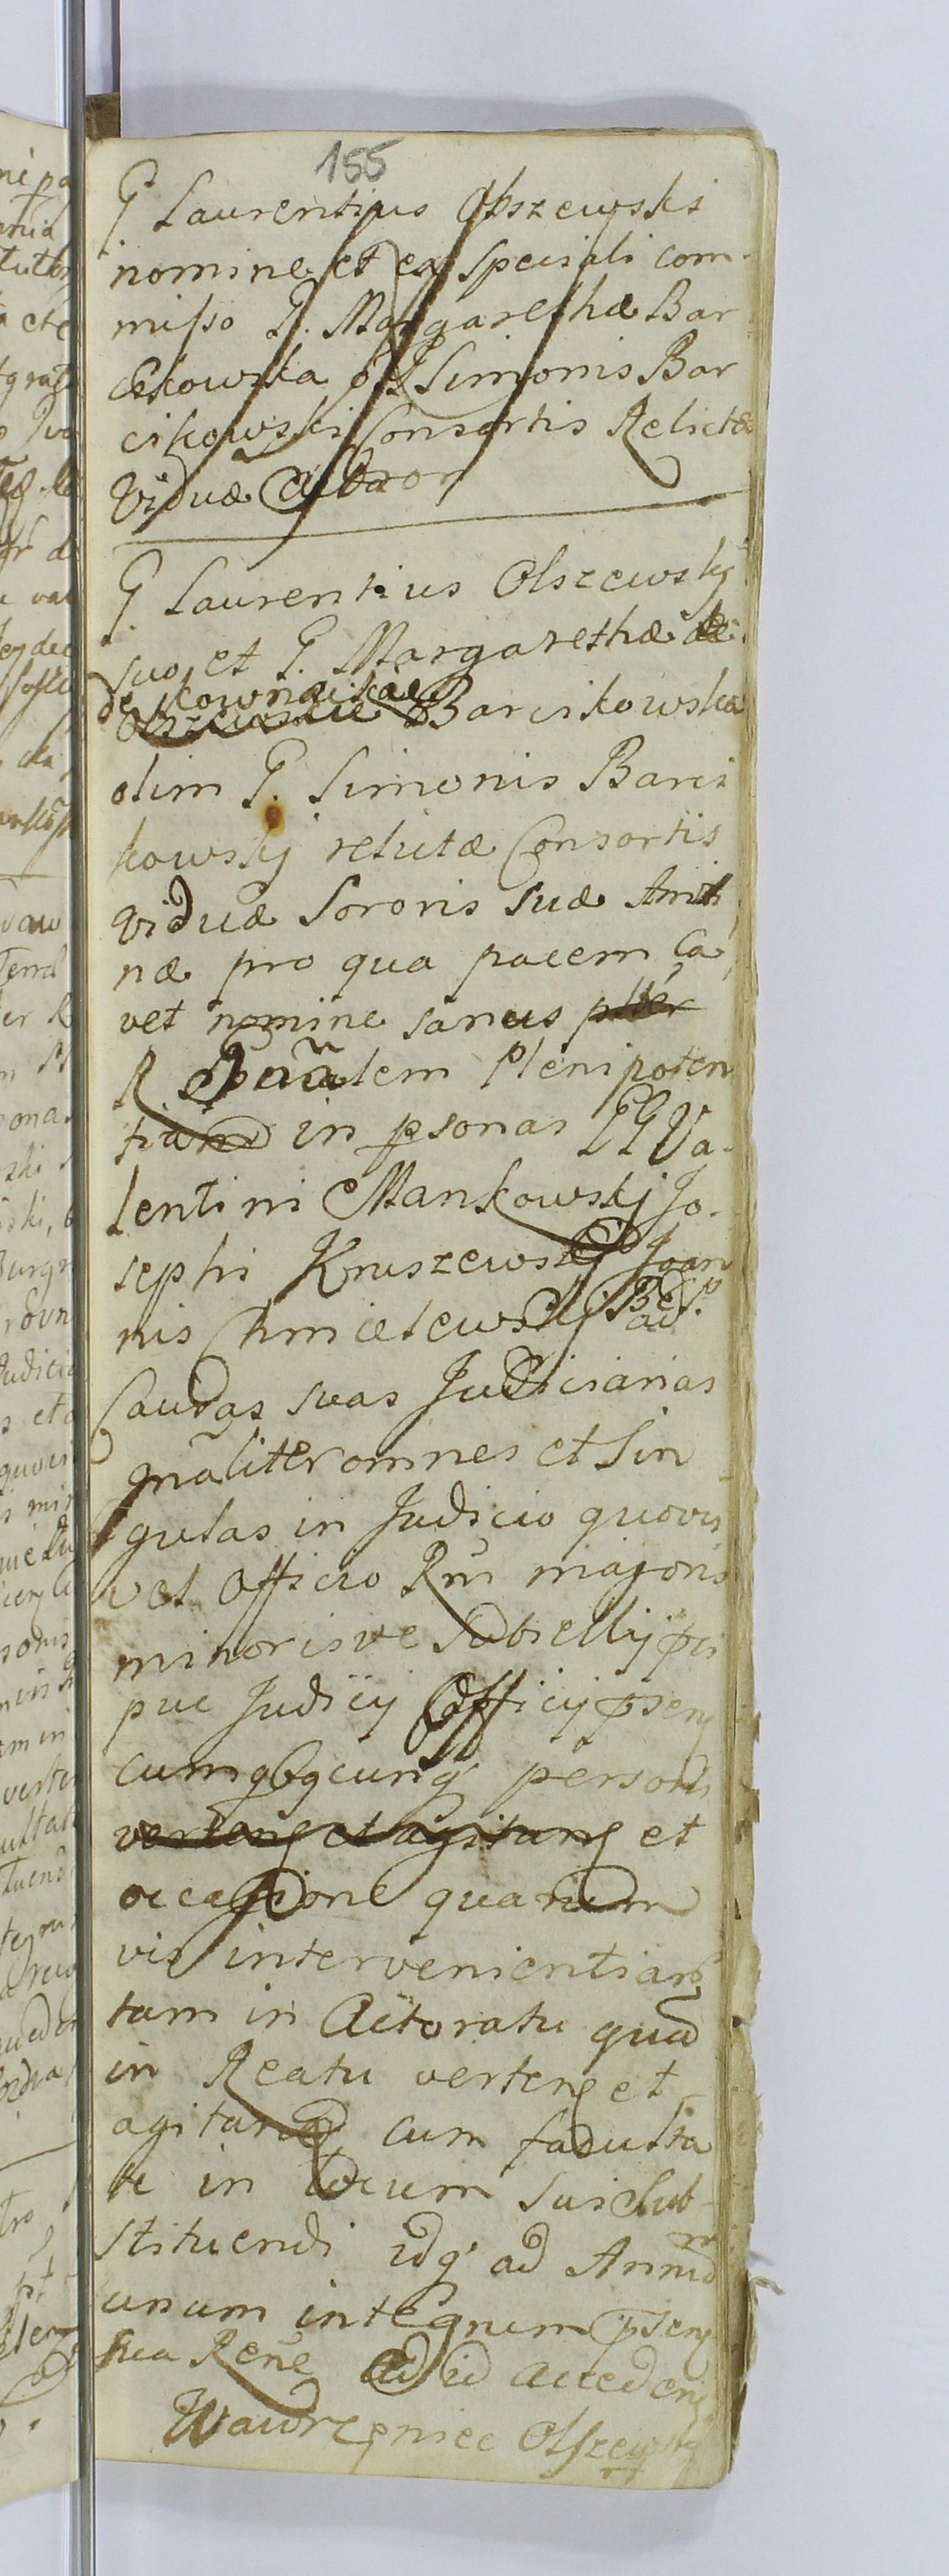 155
G. Laurentius Olszewski
nomine et ex speciali com-
misso G. Margarethæ Bar
cikowska o. G. Simonis Bar
cikowski Consortis Relictæ
Viduæ
G. Laurentius Olszewskij
suo et G. Margarethæ de
Barcikowska
olim G. Simonis Barci
kowskij relictæ Consortis
viduæ Sororis suæ Amit
næ pro qua pacem ca
vet nomine
R. Plenipoten
tiam in psonas GG Va-
lentini Mankowskij Jo-
sephi Kruszewskij Joan
nis Chmielewskij ad
Causas suas Judiciarias
gnãliter omnes et Sin
gulas in Judicio quovis
vel Officio Rni majoris
minorisve Subsellij
Judicij Officij
personis
et
occasione quarum
vis intervenientiarũ
tam in Actoratu quam
in Reatu verteñ et
agitañ cum faculta
te in locum sui Sub-
stituendi idq ad Annũ
unum integrum
sua Rene ad id
Wawrzeniec Olszewskij